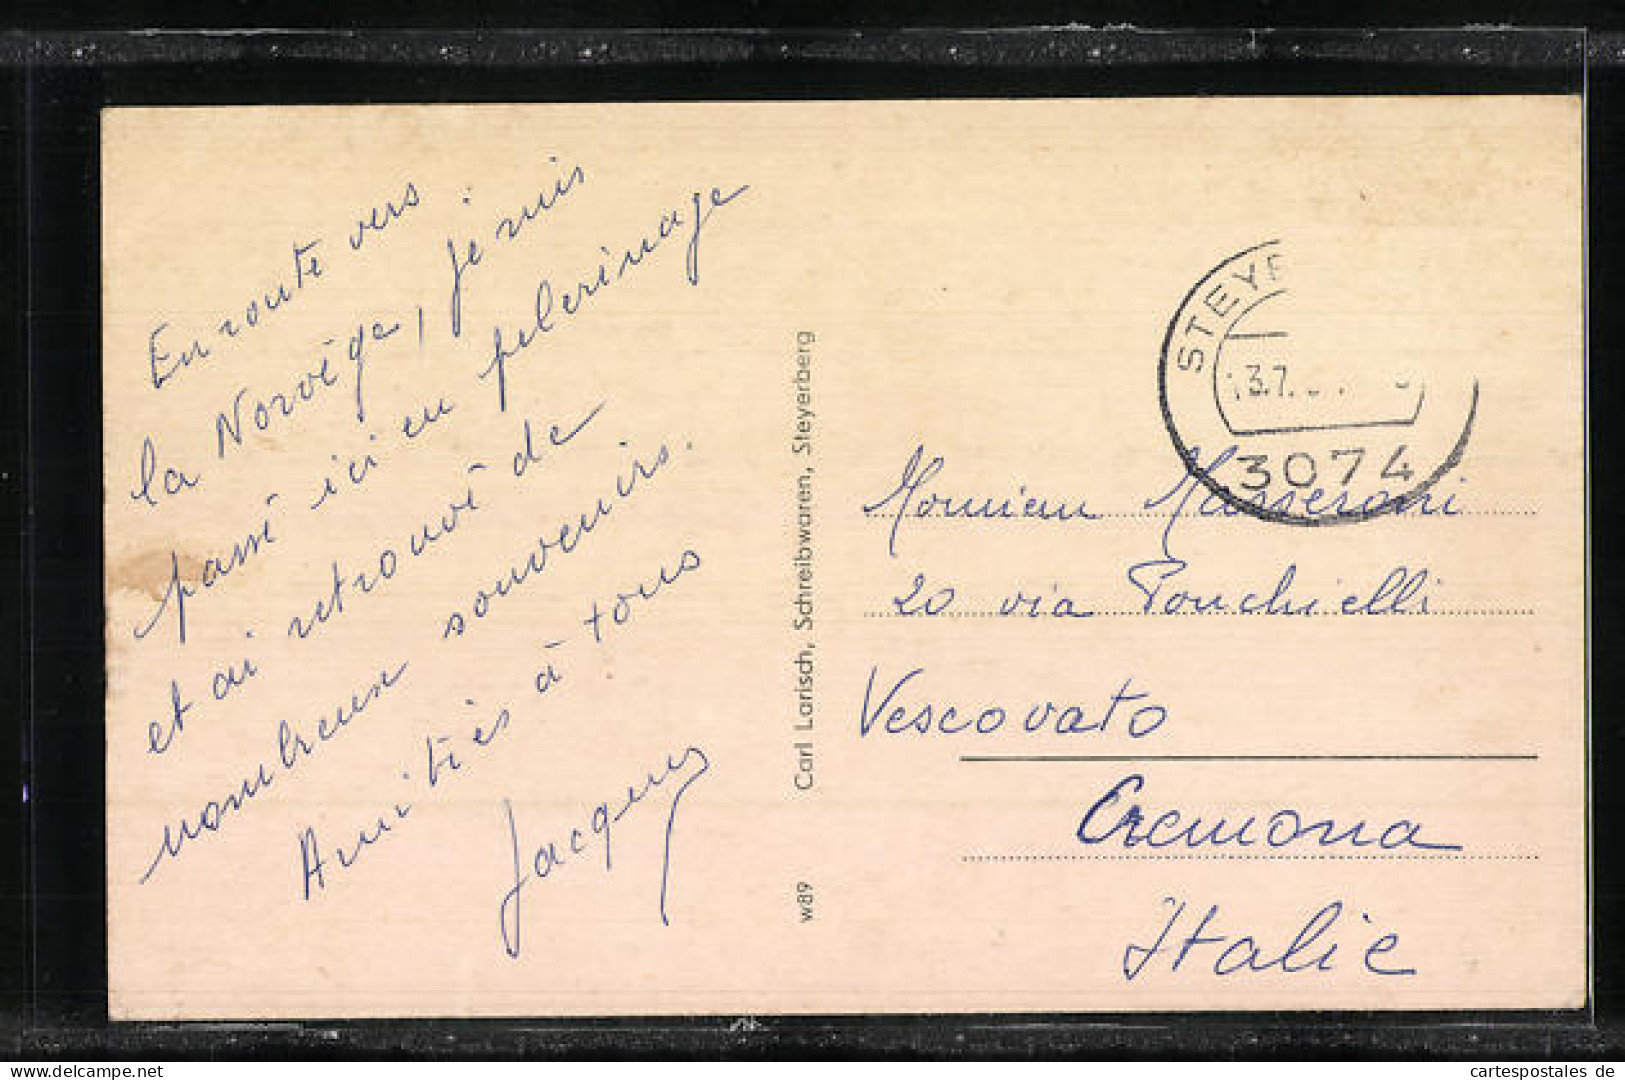 En route vers
la Norvège, je suis
passé ici en pelerinage
et ai retrouvé de
nombreux souvenirs.
Amitiés à tous
Jacques
Carl Larisch, Schreibwaren, Steyerberg
w89
STEYE
3.7.
3074
Monsieur Masseroni
20 via Ponchielli
Vescovato
Cremona
Italie
www.cartespostales.de